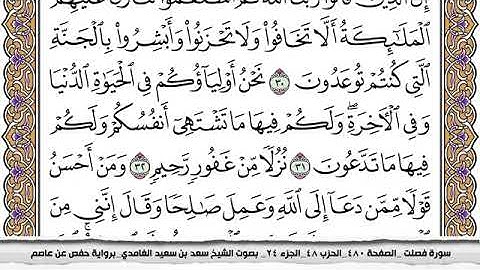 إِنَّ ٱلَّذِينَ قَالُوا۟ رَبُّنَا ٱللَّهُ ثُمَّ ٱسْتَقَٰمُوا۟ تَتَنَزَّلُ عَلَيْهِمُ
ٱلْمَلَٰٓئِكَةُ أَلَّا تَخَافُوا۟ وَلَا تَحْزَنُوا۟ وَأَبْشِرُوا۟ بِٱلْجَنَّةِ
ٱلَّتِى كُنتُمْ تُوعَدُونَ ٣٠ نَحْنُ أَوْلِيَآؤُكُمْ فِى ٱلْحَيَوٰةِ ٱلدُّنْيَا
وَفِى ٱلْءَاخِرَةِ ۖ وَلَكُمْ فِيهَا مَا تَشْتَهِىٓ أَنفُسُكُمْ وَلَكُمْ
فِيهَا مَا تَدَّعُونَ ٣١ نُزُلًا مِّنْ غَفُورٍ رَّحِيمٍ ٣٢ وَمَنْ أَحْسَنُ
قَوْلًا مِّمَّن دَعَآ إِلَى ٱللَّهِ وَعَمِلَ صَٰلِحًا وَقَالَ إِنَّنِى مِنَ
سورة فصلت _الصفحة ٤٨٠_ الحزب ٤٨_ الجزء ٢٤_ بصوت الشيخ سعد بن سعيد الغامدي_ برواية حفص عن عاصم